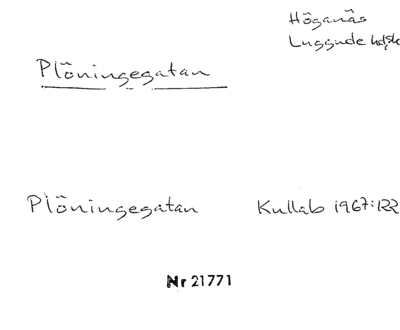 Höganäs
Luggude hd, Sk
Plöningegatan
Plöningegatan Kullab 1967:122
Nr 21771